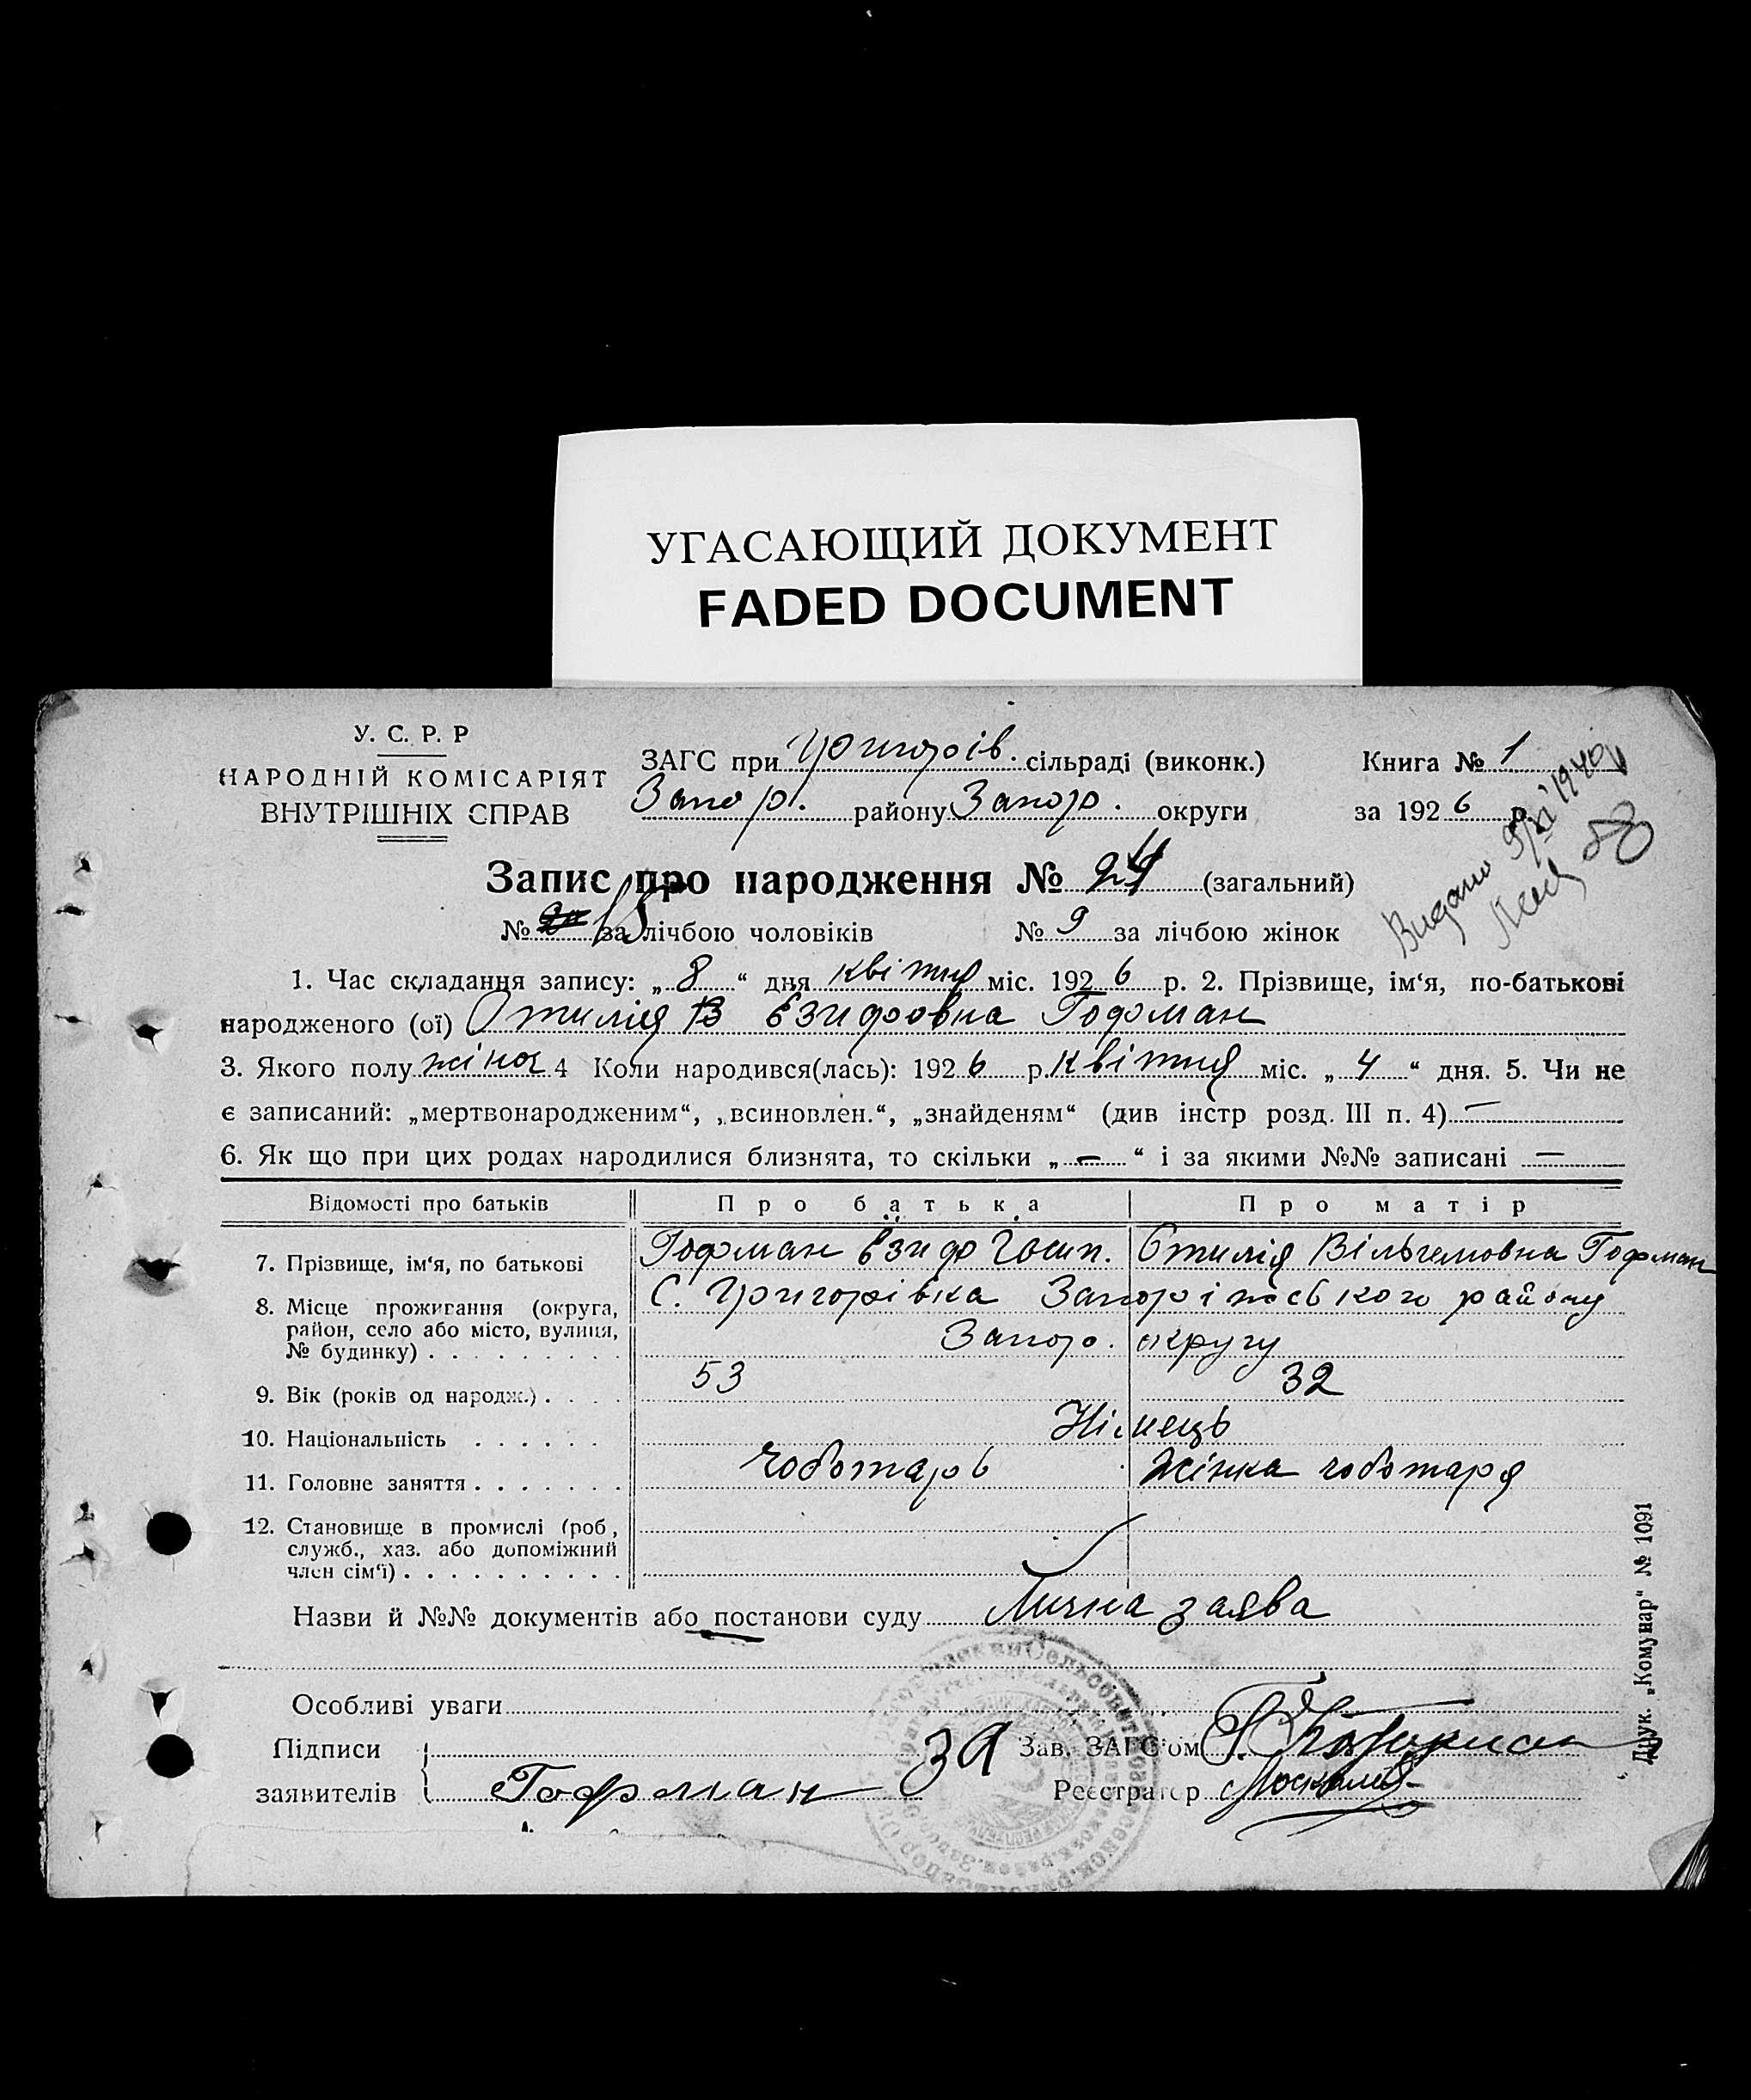 УГАСАЮЩИЙ ДОКУМЕНТ
FADED DOCUMENT
У. С. Р. Р
НАРОДНІЙ КОМІСАРІЯТ
ВНУТРІШНІХ СПРАВ
ЗАГС при Григорів. сільраді (виконк.)
Запор. району Запор. округи
Книга № 1
за 1926 р.
Видано 1940
Запис про народження № 24 (загальний)
№ 15 за лічбою чоловіків № 9 за лічбою жінок
1. Час складання запису: „8“ дня квітня міс. 1926 р. 2. Прізвище, ім‘я, по-батькові
народженого (ої) Отилія Езидровна Гофман
3. Якого полу жіноч 4 Коли народився(лась): 1926 р. квітня міс. „4“ дня. 5. Чи не
є записаний: „мертвонародженим“, „всиновлен.“, „знайденям“ (див інстр розд. III п. 4) —
6. Як що при цих родах народилися близнята, то скільки „—“ і за якими №№ записані —
Відомості про батьків Про батька Про матір
7. Прізвище, ім‘я, по батькові Гофман Езидр Йосип. Отилія Вільгемовна Гофман
8. Місце прожигання (округа, район, село або місто, вулиця, № будинку) С. Григорівка Запоріжського району
Запор. округу
9. Вік (років од народж.) 53 32
10. Національність Німець
11. Головне заняття Чоботарь Жінка чоботаря
12. Становище в промислі (роб, служб., хаз. або допоміжний член сім‘ї)
Назви й №№ документів або постанови суду Лична заява
Особливі уваги
Підписи заявителів Гофман
За Зав. ЗАГС‘ом
Реєстратор
Друк. „Комунар“ № 1091